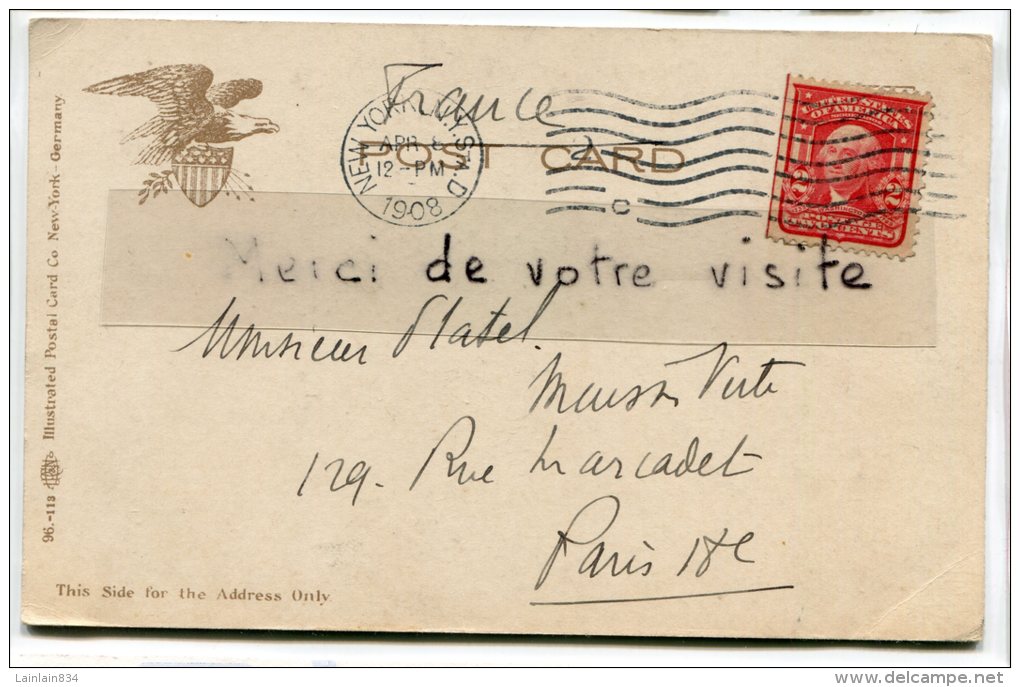 France
POST CARD
NEW YORK, N.Y. STA. D
APR 8
12-PM
1908
C
UNITED STATES
OF AMERICA
2 2
Merci de votre visite
Monsieur Platel.
Maison Verte
129. Rue Marcadet
Paris 18e
96.-113
Illustrated Postal Card Co New-York - Germany
This Side for the Address Only
Lainlain834
www.delcampe.net